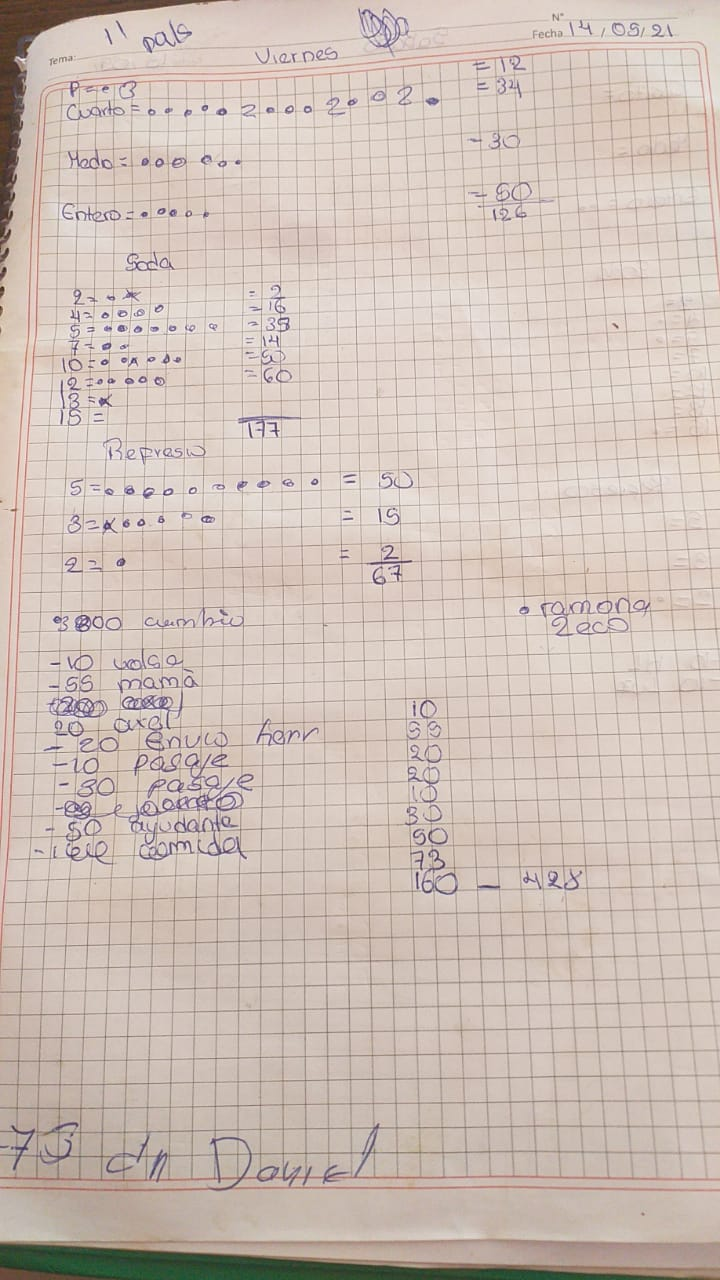 11 pals
N°
Tema:
Viernes
Fecha 14/05/21
= 12
Cuarto = • • • • • 2 • • • 2 • • 2 • = 34
Medo = • • • • • • - 30
Entero = • • • • • = 50
126
Soda
2 = • x = 2
4 = • • • • = 16
5 = • • • • • • • = 35
7 = • • = 14
10 = • • x • • • = 50
12 = • • • • • = 60
13 = x
15 =
177
Refresco
5 = • • • • • • • • • • = 50
3 = x • • • • • = 15
2 = • = 2
67
cambio
• ramona
2 eco
-10 volsa
-55 mamá
20 axel
- 20 enuco herr
-10 pasaje
- 30 pasaje
- 50 ayudante
comida
10
55
20
20
10
30
50
73
160 - 428
-73 dn Daniel